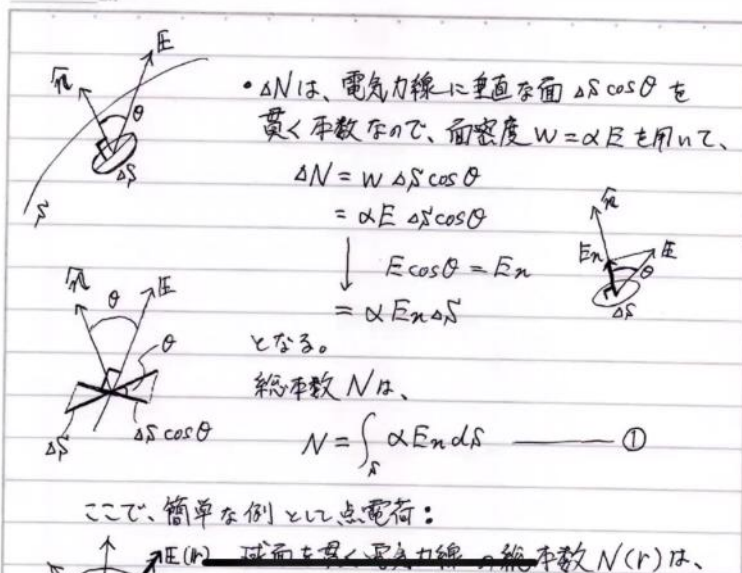 n E
θ
ΔS
S
・ΔNは、電気力線に垂直な面 ΔS cosθ を
貫く本数なので、面密度 w = αE を用いて、
ΔN = w ΔS cosθ
= αE ΔS cosθ
↓ E cosθ = En
= αEnΔS
n
En E
θ
ΔS
となる。
n θ E
θ
ΔS ΔS cosθ
総本数 N は、
N = ∫S αEn dS ――― ①
ここで、簡単な例として点電荷:
E(r) 球面を貫く電気力線の総本数 N(r) は、